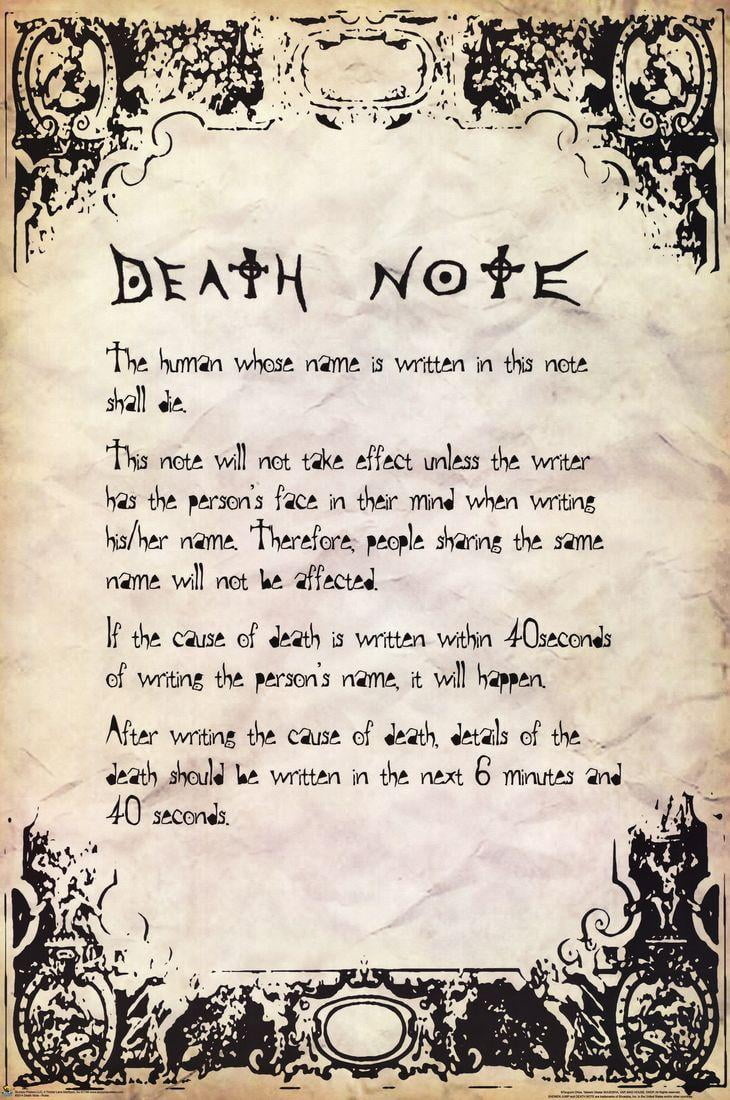 DEATH NOTE
The human whose name is written in this note
shall die.
This note will not take effect unless the writer
has the person's face in their mind when writing
his/her name. Therefore, people sharing the same
name will not be affected.
If the cause of death is written within 40seconds
of writing the person's name, it will happen.
After writing the cause of death, details of the
death should be written in the next 6 minutes and
40 seconds.